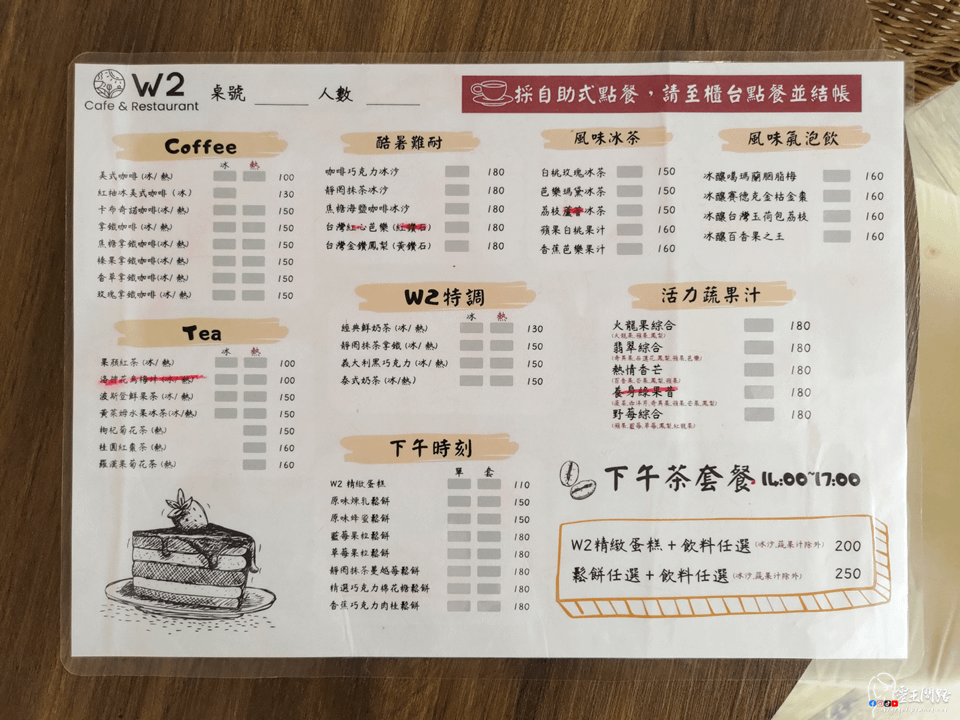 W2
Cafe & Restaurant
桌號 人數
採自助式點餐，請至櫃台點餐並結帳
Coffee
冰 熱
美式咖啡 (冰/熱) 100
紅柚冰美式咖啡 (冰) 130
卡布奇諾咖啡(冰/熱) 150
拿鐵咖啡(冰/熱) 150
焦糖拿鐵咖啡(冰/熱) 150
榛果拿鐵咖啡(冰/熱) 150
香草拿鐵咖啡(冰/熱) 150
玫瑰拿鐵咖啡(冰/熱) 150
Tea
冰 熱
果蘋紅茶 (冰/熱) 100
洛神花烏梅汁 (冰/熱) 100
波斯登鮮果茶 (冰/熱) 150
黃萊姆水果冰茶(冰/熱) 150
枸杞菊花茶 (熱) 150
桂圓紅棗茶 (熱) 160
羅漢果菊花茶 (熱) 160
酷暑難耐
咖啡巧克力冰沙 180
靜岡抹茶冰沙 180
焦糖海鹽咖啡冰沙 180
台灣紅心芭樂 (紅鑽石) 180
台灣金鑽鳳梨 (黃鑽石) 180
W2特調
冰 熱
經典鮮奶茶 (冰/熱) 130
靜岡抹茶拿鐵 (冰/熱) 150
義大利黑巧克力 (冰/熱) 150
泰式奶茶 (冰/熱) 150
下午時刻
單 套
W2 精緻蛋糕 110
原味煉乳鬆餅 150
原味蜂蜜鬆餅 150
藍莓果粒鬆餅 180
草莓果粒鬆餅 180
靜岡抹茶蔓越莓鬆餅 180
精選巧克力棉花糖鬆餅 180
香蕉巧克力肉桂鬆餅 180
風味冰茶
白桃玫瑰冰茶 150
芭樂瑪黛冰茶 150
荔枝蘆薈冰茶 150
蘋果白桃果汁 160
香蕉芭樂果汁 160
風味氣泡飲
冰釀噶瑪蘭胭脂梅 160
冰釀賽德克金桔金棗 160
冰釀台灣玉荷包荔枝 160
冰釀百香果之王 160
活力蔬果汁
火龍果綜合 180
(火龍果,蘋果,鳳梨)
翡翠綜合 180
熱情香芒 180
(百香果,芒果,鳳梨,蘋果)
養身綠果昔 180
野莓綜合 180
(蘋果,藍莓,草莓,鳳梨,紅龍果)
下午茶套餐 14:00~17:00
W2精緻蛋糕+飲料任選 (冰沙,蔬果汁除外) 200
鬆餅任選+飲料任選 (冰沙,蔬果汁除外) 250